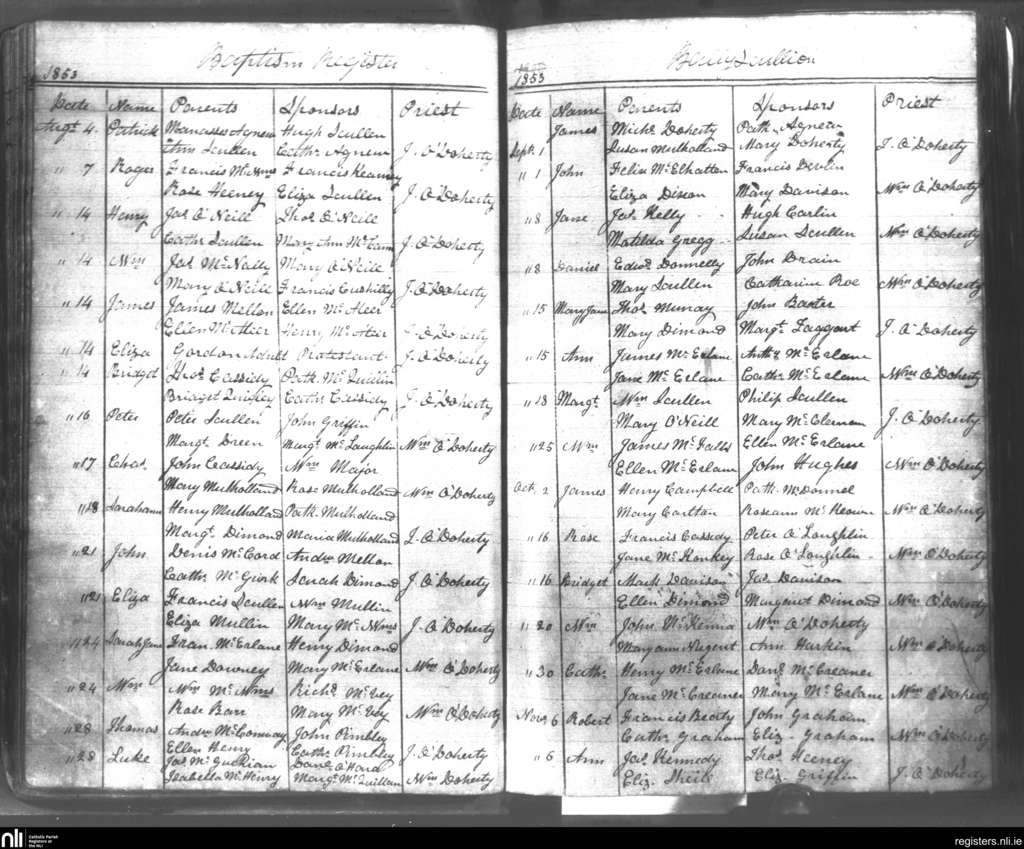 1853 Baptism Register
Date Name Parents Sponsors Priest
Augt 4. Patrick Manasses Agnew Hugh Scullen
Ann Scullen Cathn Agnew J. O'Doherty
" 7 Roger Francis Francis Kearney
Rose Heeney Eliza Scullen J. O'Doherty
" 14 Henry Jas O'Neill Thos O'Neill
Cathn Scullen Mary Ann McCann J. O'Doherty
" 14 Wm Jas McNally Mary O'Neill
Mary O'Neill Francis Cushilly J. O'Doherty
" 14 James James Mellen Ellen McHeer
Ellen McHeer Henry McHeer J. O'Doherty
" 14 Eliza Gordon Adult Protestant J. O'Doherty
" 14 Bridget Thos Cassidy Patk. McQuillin
Bridget Cathn Cassidy J. O'Doherty
" 16 Peter Peter Scullen John Griffin
Margt. Dreen Margt. McLaughlin Wm O'Doherty
" 17 Chas. John Cassidy Wm Major
Mary Mulholland Rose Mulholland Wm O'Doherty
" 18 Sarahann Henry Mulholland Patk. Mulholland
Margt. Dimond Maria Mulholland J. O'Doherty
" 21 John Denis McCord Andw Mellon
Cathn McGurk Sarah Dimond J. O'Doherty
" 21 Eliza Francis Scullen Wm Mullin
Eliza Mullin Mary J. O'Doherty
" 24 Sarah Jane Fran. McErlane Henry Dimond
Jane Downey Mary McErlane Wm O'Doherty
" 24 Wm Wm Richd McVey
Rose Barr Mary McVey Wm O'Doherty
" 28 Thomas Andw McConway John Pimbley
Ellen Henry Cathn Pimbley J. O'Doherty
" 28 Luke Jas. McGuckian Danl O'Hara
Isabella McHenry Margt. McQuillan Wm Doherty
1853 Scullion
Date Name Parents Sponsors Priest
James Michl Doherty Patk. Agnew
Sept. 1 Susan Mulholland Mary Doherty J. O'Doherty
" 1 John Felix McElhatton Francis Devlin
Eliza Dixon Mary Davison Wm O'Doherty
" 8 Jane Jas. Kelly Hugh Carlin
Matilda Gregg Susan Scullen Wm O'Doherty
" 8 Daniel Edwd. Donnelly John Drain
Mary Scullen Catharine Roe Wm O'Doherty
" 15 Mary Jane Thos Murray John Baxter
Mary Dimond Margt. Taggart J. O'Doherty
" 15 Ann James McErlane Anthy McErlane
Jane McErlane Cathn McErlane Wm O'Doherty
" 18 Margt. Wm Scullen Philip Scullen
Mary O'Neill Mary McClernan J. O'Doherty
" 25 Wm James McFalls Ellen McErlane
Ellen McErlane John Hughes Wm O'Doherty
Oct. 2 James Henry Campbell Patk. McDonnel
Mary Carltan Roseann McKeown Wm O'Doherty
" 16 Rose Francis Cassedy Peter O'Loughlin
Jane McKonkey Rose O'Loughlin Wm O'Doherty
" 16 Bridget Mark Davison Jas. Davison
Ellen Dimond Margaret Dimond Wm O'Doherty
" 20 Wm John McKenna Wm O'Doherty
Maryann Nugent Ann Harkin Wm O'Doherty
" 30 Cathn Henry McErlane Danl. McCreaner
Jane McCreaner Mary McErlane Wm O'Doherty
Nov. 6 Robert Francis Beaty John Graham
Cathn Graham Eliz. Graham Wm O'Doherty
" 6 Ann Jas. Kennedy Thos. Heeney
Eliz. Sheil Eliz. Griffin J. O'Doherty
nli Catholic Parish Registers at the NLI
registers.nli.ie